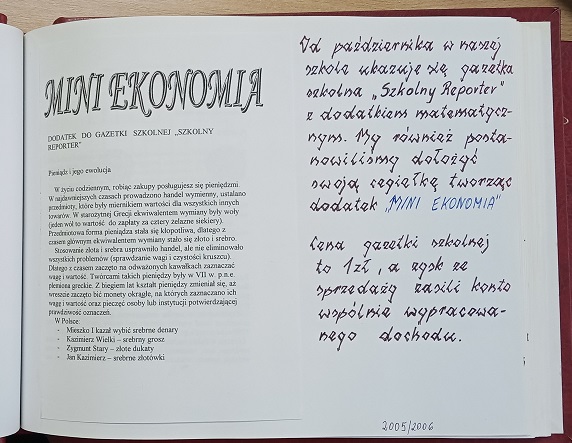 MINI EKONOMIA
DODATEK DO GAZETKI SZKOLNEJ „SZKOLNY
REPORTER”
Pieniądz i jego ewolucja
W życiu codziennym, robiąc zakupy posługujesz się pieniędzmi.
W najdawniejszych czasach prowadzono handel wymienny, ustalano
przedmioty, które były miernikiem wartości dla wszystkich innych
towarów. W starożytnej Grecji ekwiwalentem wymiany były woły
(jeden wół to wartość do zapłaty za cztery żelazne siekiery).
Przedmiotowa forma pieniądza stała się kłopotliwa, dlatego z
czasem głównym ekwiwalentem wymiany stało się złoto i srebro.
Stosowanie złota i srebra usprawniło handel, ale nie eliminowało
wszystkich problemów (sprawdzanie wagi i czystości kruszcu).
Dlatego z czasem zaczęto na odważonych kawałkach zaznaczać
wagę i wartość. Twórcami takich pieniędzy były w VII w. p.n.e.
plemiona greckie. Z biegiem lat kształt pieniędzy zmieniał się, aż
wreszcie zaczęto bić monety okrągłe, na których zaznaczano ich
wagę i wartość oraz pieczęć osoby lub instytucji potwierdzającej
prawdziwość oznaczeń.
W Polsce:
- Mieszko I kazał wybić srebrne denary
- Kazimierz Wielki – srebrny grosz
- Zygmunt Stary – złote dukaty
- Jan Kazimierz – srebrne złotówki
Od października w naszej
szkole ukazuje się gazetka
szkolna „Szkolny Reporter”
z dodatkiem matematycz-
nym. My również posta-
nowiliśmy dołożyć
swoją cegiełkę tworząc
dodatek „MINI EKONOMIA”
Cena gazetki szkolnej
to 1zł, a zysk ze
sprzedaży zasili konto
wspólnie wypracowa-
nego dochodu.
2005/2006